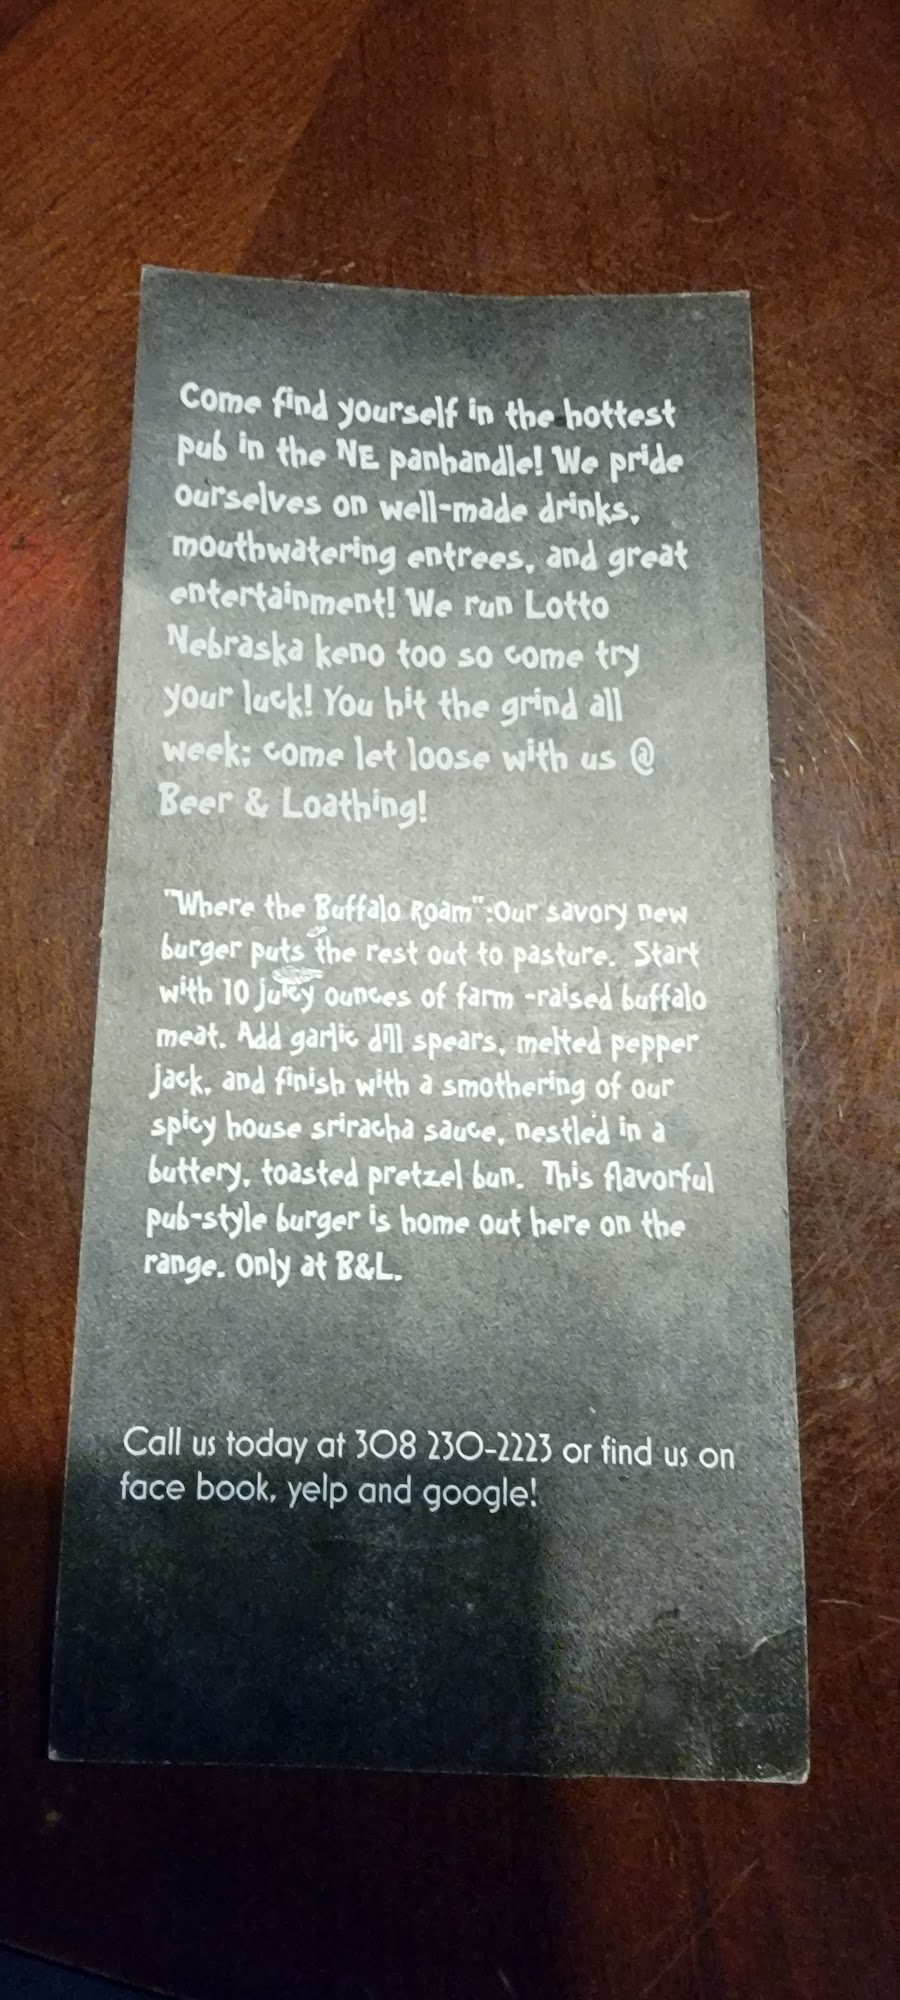 Come find yourself in the hottest
pub in the NE panhandle! We pride
ourselves on well-made drinks,
mouthwatering entrees, and great
entertainment! We run Lotto
Nebraska keno too so come try
your luck! You hit the grind all
week; come let loose with us @
Beer & Loathing!
"Where the Buffalo Roam":Our savory new
burger puts the rest out to pasture. Start
with 10 juicy ounces of farm -raised buffalo
meat. Add garlic dill spears, melted pepper
jack, and finish with a smothering of our
spicy house sriracha sauce, nestled in a
buttery, toasted pretzel bun. This flavorful
pub-style burger is home out here on the
range. Only at B&L.
Call us today at 308 230-2223 or find us on
face book, yelp and google!